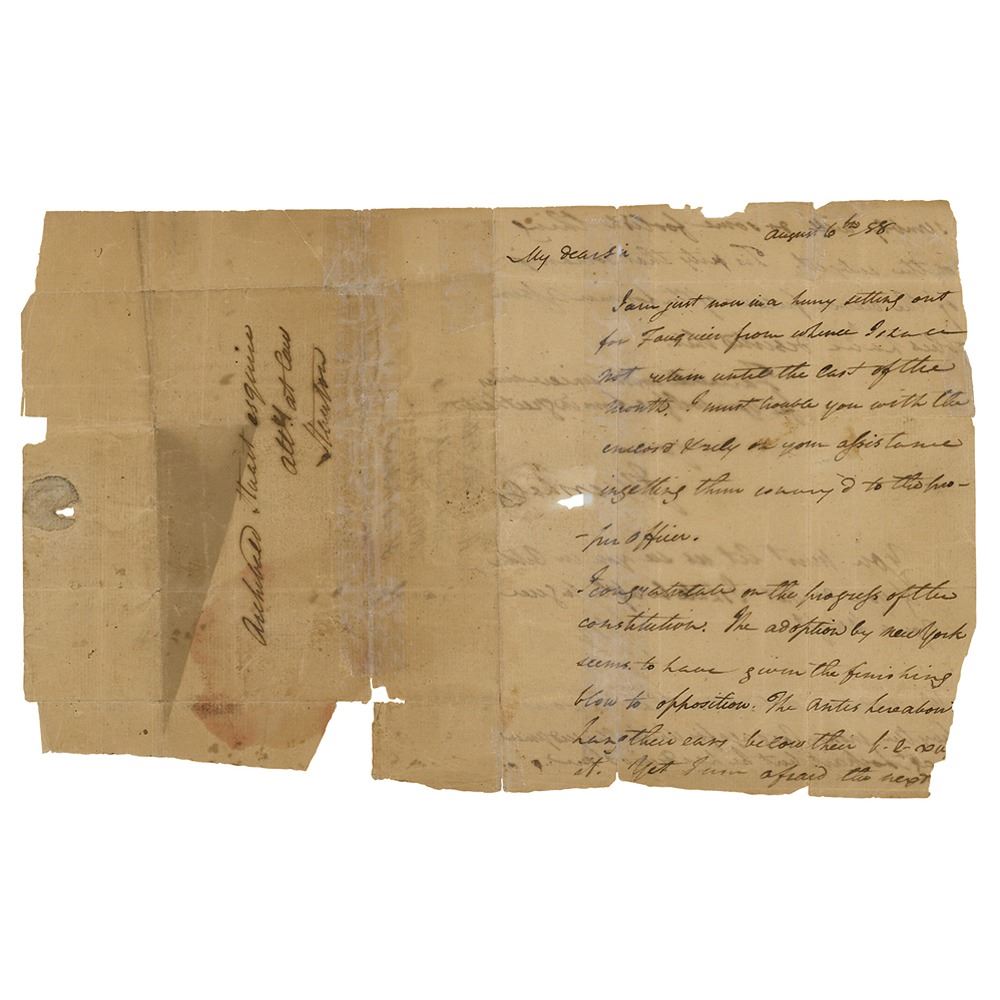 Archibald Stuart esquire
Atty at Law
Staunton
August 6th 88
My dear Sir
I am just now in a hurry setting out
for Fauquier from whence I shall
not return until the last of the
month. I must trouble you with the
enclosd & rely on your assistance
in getting them convey'd to the pro-
-per officer.
I congratulate on the progress of the
constitution. The adoption by new York
seems to have given the finishing
blow to opposition. The Antis hereabout
hang their ears below their
it. Yet I am afraid the next